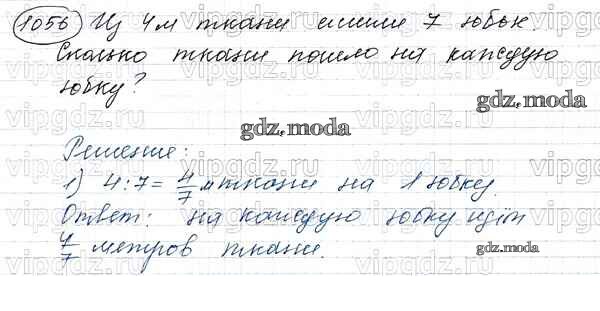 1056 Из 4 м ткани сшили 7 юбок.
Сколько ткани пошло на каждую
юбку?
gdz.moda
gdz.moda
Решение:
1) 4:7= 4/7 м ткани на 1 юбку.
Ответ: на каждую юбку идёт
4/7 метров ткани.
gdz.moda
vipgdz.ru